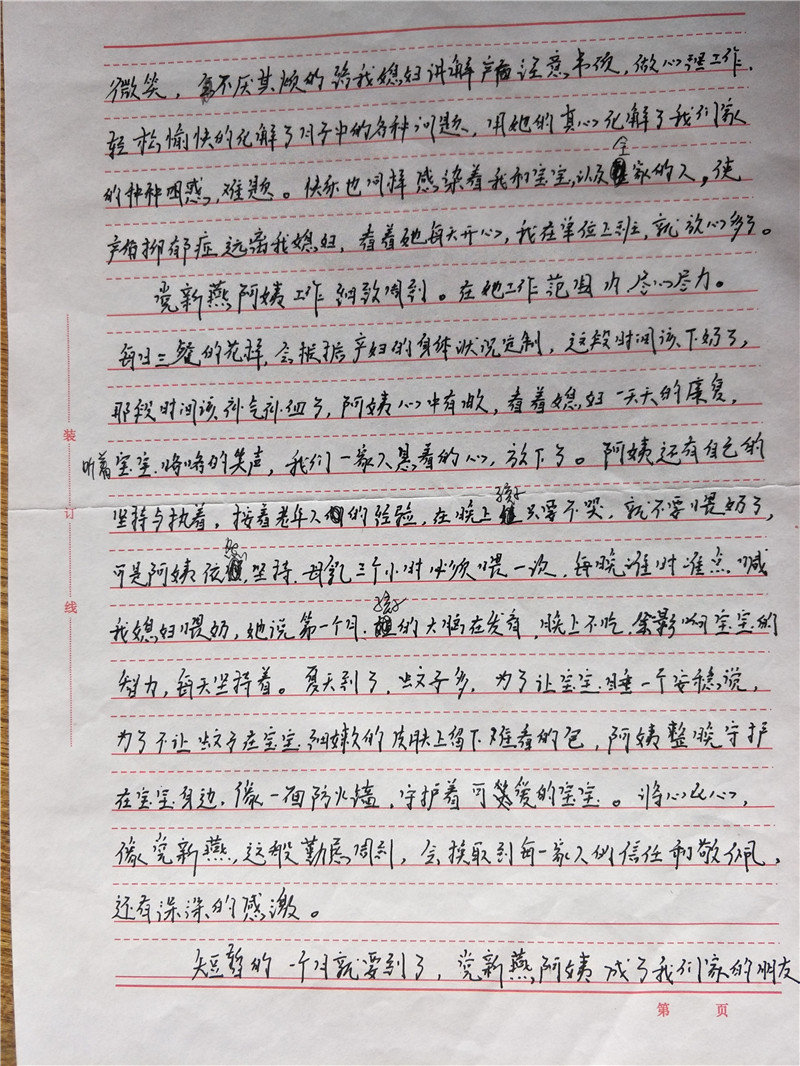 微笑，不厌其烦的给我媳妇讲解产后注意事项，做心理工作.
轻松愉快的化解了月子中的各种问题，用她的真心化解了我们家
的种种困惑，难题。快乐也同样感染着我和宝宝，以及全家的人，使
产后抑郁症远离我媳妇，看着她每天开心，我在单位上班，就放心多了。
党新燕阿姨工作细致周到。在她工作范围内尽心尽力。
每日三餐的花样，会根据产妇的身体状况定制，这段时间该下奶了，
那段时间该补气补血了，阿姨心中有数，看着媳妇一天天的康复，
听着宝宝咯咯的笑声，我们一家人悬着的心，放下了。阿姨还有自己的
坚持与执着，按着老年人的经验，在晚上孩子只要不哭，就不要喂奶了，
可是阿姨依然坚持，母乳三个小时必须喂一次，每晚准时准点喊
我媳妇喂奶，她说第一个月，孩子的大脑在发育，晚上不吃，会影响宝宝的
智力，每天坚持着。夏天到了，蚊子多，为了让宝宝睡一个安稳觉，
为了不让蚊子在宝宝细嫩的皮肤上留下难看的包，阿姨整晚守护
在宝宝身边，像一面防火墙，守护着可爱的宝宝。将心比心，
像党新燕，这般勤恳周到，会换取到每一家人的信任和敬佩，
还有深深的感激。
短暂的一个月就要到了，党新燕阿姨成了我们家的朋友
装
订
线
第 页